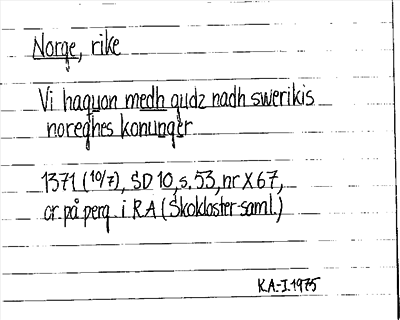 Norge, rike
Vi haquon medh gudz nadh swerikis
noreghes konunger
1371 (10/7), SD 10, s. 53, nr X 67,
or. på perg. i RA (Skokloster-saml.)
K.A.-I. 1975